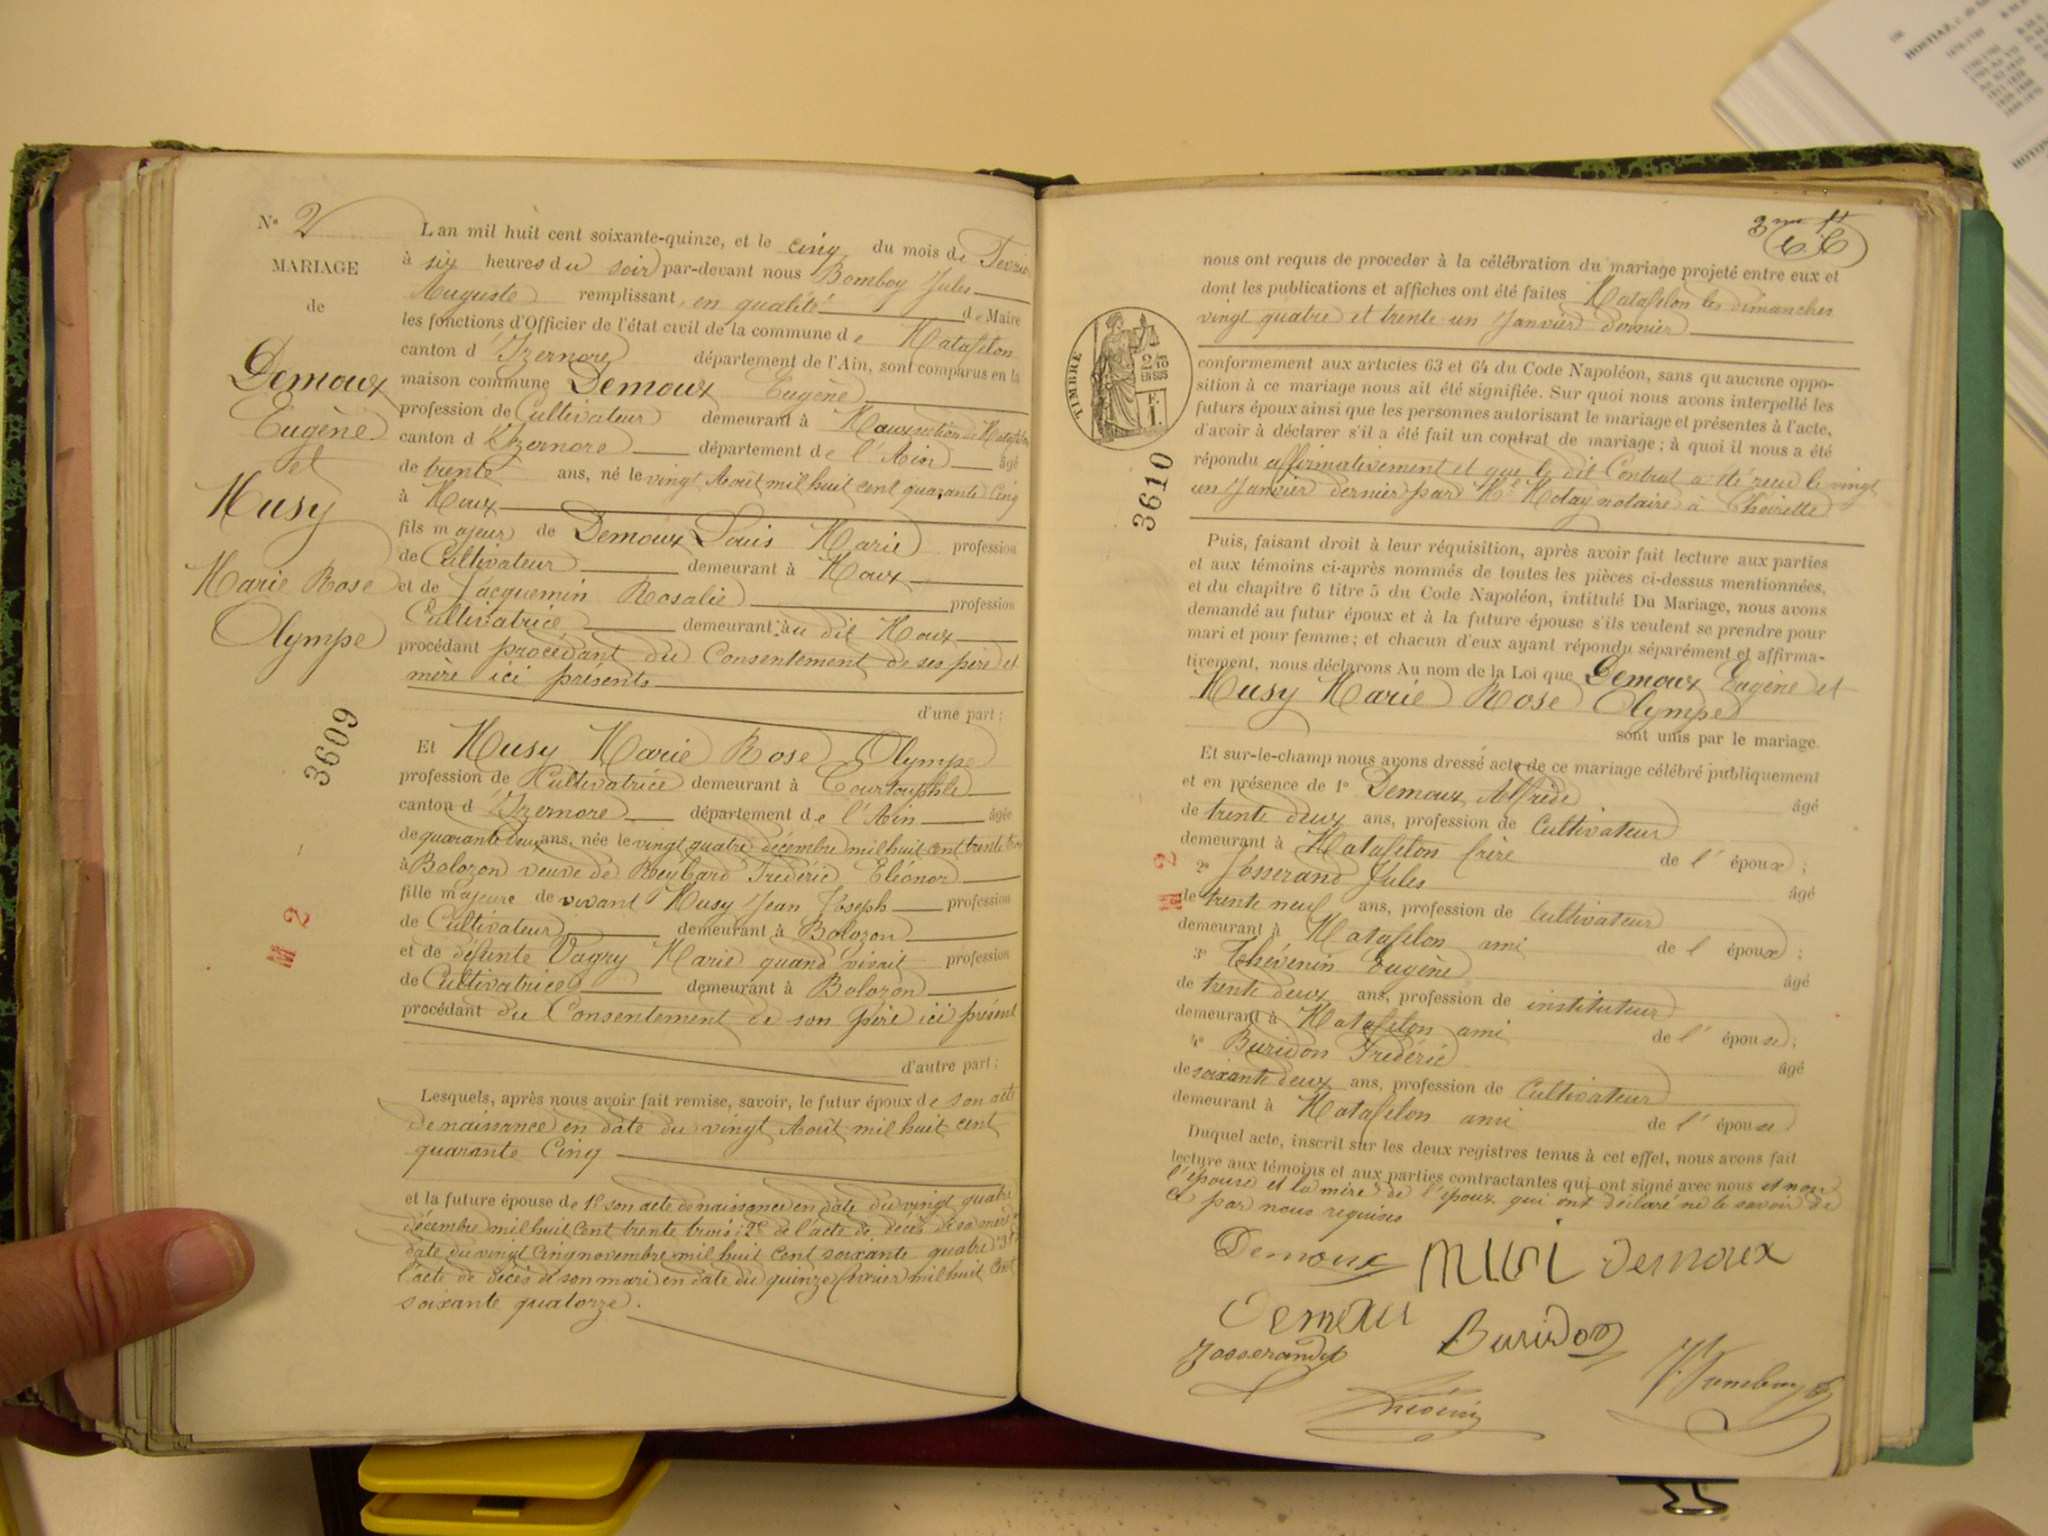 N° 2
MARIAGE
de
Demoux
Eugène
et
Musy
Marie Rose
Olympe
3609
M 2
L'an mil huit cent soixante-quinze, et le cinq du mois de Février
à six heures du soir par-devant nous Bomboy Jules
Auguste remplissant, en qualité de Maire
les fonctions d'Officier de l'état civil de la commune de Matafelon
canton d'Izernore département de l'Ain, sont comparus en la
maison commune Demoux Eugène
profession de Cultivateur demeurant à Moux section de Matafelon
canton d'Izernore département de l'Ain âgé
de trente ans, né le vingt Août mil huit cent quarante Cinq
à Moux
fils majeur de Demoux Louis Marie profession
de Cultivateur demeurant à Moux
et de Jacquemin Rosalie profession
Cultivatrice demeurant au dit Moux
procédant procédant du Consentement de ses père et
mère ici présents
d'une part;
Et Musy Marie Rose Olympe
profession de Cultivatrice demeurant à Courtouphle
canton d'Izernore département de l'Ain âgée
de quarante deux ans, née le vingt quatre décembre mil huit cent trente trois
à Bolozon veuve de Reybard Frédéric Eléonor
fille majeure de vivant Musy Jean Joseph profession
de Cultivateur demeurant à Bolozon
et de défunte Vagry Marie quand vivait profession
de Cultivatrice demeurant à Bolozon
procédant du Consentement de son père ici présent
d'autre part;
Lesquels, après nous avoir fait remise, savoir, le futur époux de son acte
de naissance en date du vingt Août mil huit cent
quarante Cinq
et la future épouse de 1° son acte de naissance en date du vingt quatre
décembre mil huit cent trente trois; 2° de l'acte de décès de sa mère
date du vingt cinq novembre mil huit cent soixante quatre 3°
l'acte de décès de son mari en date du quinze février mil huit cent
soixante quatorze.
3me ft
nous ont requis de proceder à la célébration du mariage projeté entre eux et
dont les publications et affiches ont été faites Matafelon les dimanches
vingt quatre et trente un Janvier dernier
TIMBRE
conformement aux articles 63 et 64 du Code Napoléon, sans qu'aucune oppo-
sition à ce mariage nous ait été signifiée. Sur quoi nous avons interpellé les
futurs époux ainsi que les personnes autorisant le mariage et présentes à l'acte,
d'avoir à déclarer s'il a été fait un contrat de mariage; à quoi il nous a été
répondu affirmativement et que le dit Contrat a été reçu le vingt
un Janvier dernier par Me Molay notaire à Thoirette
3610
Puis, faisant droit à leur réquisition, après avoir fait lecture aux parties
et aux témoins ci-après nommés de toutes les pièces ci-dessus mentionnées,
et du chapitre 6 titre 5 du Code Napoléon, intitulé Du Mariage, nous avons
demandé au futur époux et à la future épouse s'ils veulent se prendre pour
mari et pour femme; et chacun d'eux ayant répondu séparément et affirma-
tivement, nous déclarons Au nom de la Loi que Demoux Eugène et
Musy Marie Rose Olympe
sont unis par le mariage.
Et sur-le-champ nous avons dressé acte de ce mariage célébré publiquement
et en présence de 1° Demoux Alfrède âgé
de trente deux ans, profession de Cultivateur
demeurant à Matafelon frère de l'époux;
2° Josserand Jules âgé
de trente neuf ans, profession de Cultivateur
demeurant à Matafelon ami de l'époux;
3° Thévenin Eugène âgé
de trente deux ans, profession de instituteur
demeurant à Matafelon ami de l'épouse;
4° Buridon Frédéric âgé
de soixante deux ans, profession de Cultivateur
demeurant à Matafelon ami de l'épouse
M 2
Duquel acte, inscrit sur les deux registres tenus à cet effet, nous avons fait
lecture aux témoins et aux parties contractantes qui ont signé avec nous et non
l'épouse et la mère de l'époux qui ont déclaré ne le savoir de
ce par nous requises
Demoux Musi Demoux
Demoux Buridon
Josserand
Thévenin